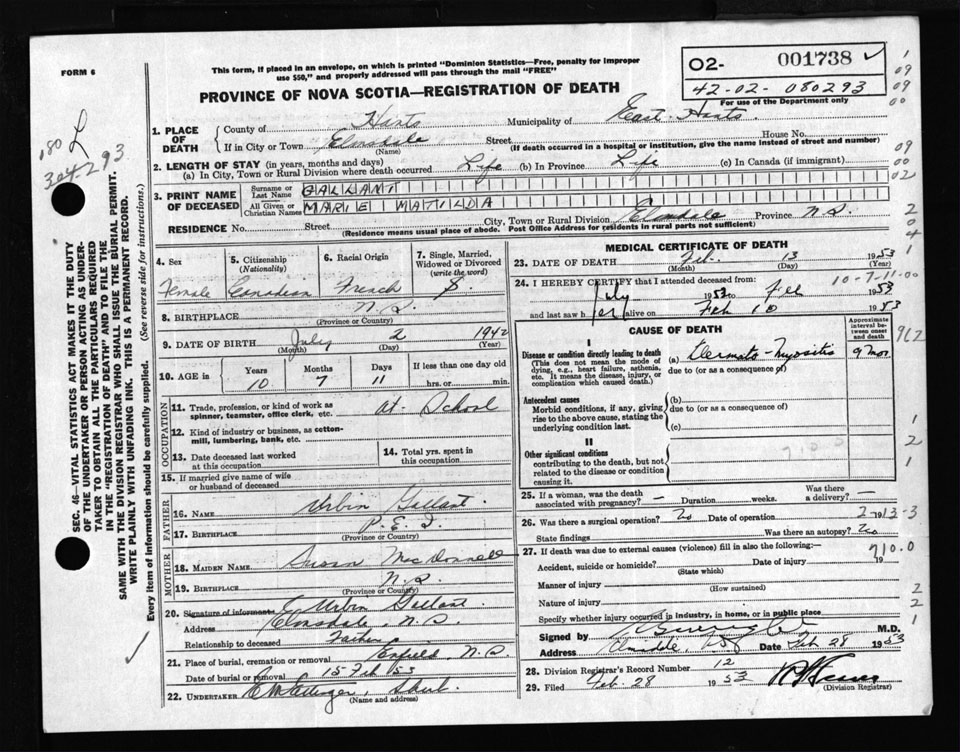 FORM 6
This form, if placed in an envelope, on which is printed "Dominion Statistics—Free, penalty for improper
use $50," and properly addressed will pass through the mail "FREE"
PROVINCE OF NOVA SCOTIA—REGISTRATION OF DEATH
O2- 001738 ✓
42-02-080293
For use of the Department only
1. PLACE OF DEATH
County of Hants Municipality of East Hants.
If in City or Town Elmsdale Street House No.
(Name) (If death occurred in a hospital or institution, give the name instead of street and number)
2. LENGTH OF STAY (in years, months and days)
(a) In City, Town or Rural Division where death occurred Life (b) In Province Life (c) In Canada (if immigrant)
3. PRINT NAME OF DECEASED
Surname or Last Name GALLANT
All Given or Christian Names MARIE MATILDA
RESIDENCE No. Street City, Town or Rural Division Elmsdale Province N.S.
(Residence means usual place of abode. Post Office Address for residents in rural parts not sufficient)
4. Sex Female
5. Citizenship (Nationality) Canadian
6. Racial Origin French
7. Single, Married, Widowed or Divorced (write the word) S.
8. BIRTHPLACE N.S.
(Province or Country)
9. DATE OF BIRTH July 2 1942
(Month) (Day) (Year)
10. AGE in Years Months Days If less than one day old
10 7 11 hrs. or min.
OCCUPATION
11. Trade, profession, or kind of work as spinner, teamster, office clerk, etc. at School
12. Kind of industry or business, as cotton-mill, lumbering, bank, etc.
13. Date deceased last worked at this occupation
14. Total yrs. spent in this occupation
15. If married give name of wife or husband of deceased
FATHER
16. NAME Urbin Gallant.
17. BIRTHPLACE P.E.I.
(Province or Country)
MOTHER
18. MAIDEN NAME Susan MacDonnell
19. BIRTHPLACE N.S.
(Province or Country)
20. Signature of informant Urbin Gallant.
Address Elmsdale, N.S.
Relationship to deceased Father
21. Place of burial, cremation or removal Enfield, N.S.
Date of burial or removal 15 Feb 53
22. UNDERTAKER
(Name and address)
MEDICAL CERTIFICATE OF DEATH
23. DATE OF DEATH Feb. 13 1953
(Month) (Day) (Year)
10-7-11-00
24. I HEREBY CERTIFY that I attended deceased from
July 1953 to Feb 1953
and last saw her alive on Feb 10 1953
CAUSE OF DEATH
Approximate interval between onset and death
I
Disease or condition directly leading to death
(This does not mean the mode of dying, e.g., heart failure, asthenia, etc. It means the disease, injury, or complication which caused death.)
(a) Dermato-Myositis 9 mos
due to (or as a consequence of)
Antecedent causes
Morbid conditions, if any, giving rise to the above cause, stating the underlying condition last.
(b)
due to (or as a consequence of)
(c)
II
Other significant conditions
contributing to the death, but not related to the disease or condition causing it.
25. If a woman, was the death associated with pregnancy? — Duration weeks. Was there a delivery? —
26. Was there a surgical operation? No Date of operation 19
State findings Was there an autopsy? No
2-13-3
27. If death was due to external causes (violence) fill in also the following:—
Accident, suicide or homicide? Date of injury 19
(State which)
710.0
Manner of injury
(How sustained)
Nature of injury
Specify whether injury occurred in industry, in home, or in public place
Signed by M.D.
Address Date Feb 28 1953
28. Division Registrar's Record Number 12
29. Filed Feb. 28 1953
(Division Registrar)
180 L
304293
SEC. 46—VITAL STATISTICS ACT MAKES IT THE DUTY
OF THE UNDERTAKER OR PERSON ACTING AS UNDER-
TAKER TO OBTAIN ALL THE PARTICULARS REQUIRED
IN THE "REGISTRATION OF DEATH" AND TO FILE THE
SAME WITH THE DIVISION REGISTRAR WHO SHALL ISSUE THE BURIAL PERMIT.
WRITE PLAINLY WITH UNFADING INK. THIS IS A PERMANENT RECORD.
Every item of information should be carefully supplied. (See reverse side for instructions.)
1
09
09
00
09
02
2
0
4
962
1
2
1
2
2
1